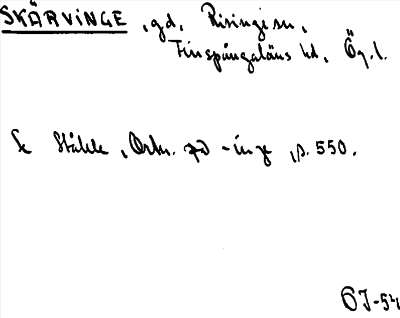 SKÄRVINGE, gd, Risinge sn,
Finspångaläns hd, Ög. l.
Se Ståhle, Ortn. på -inge, s. 550.
OJ-54